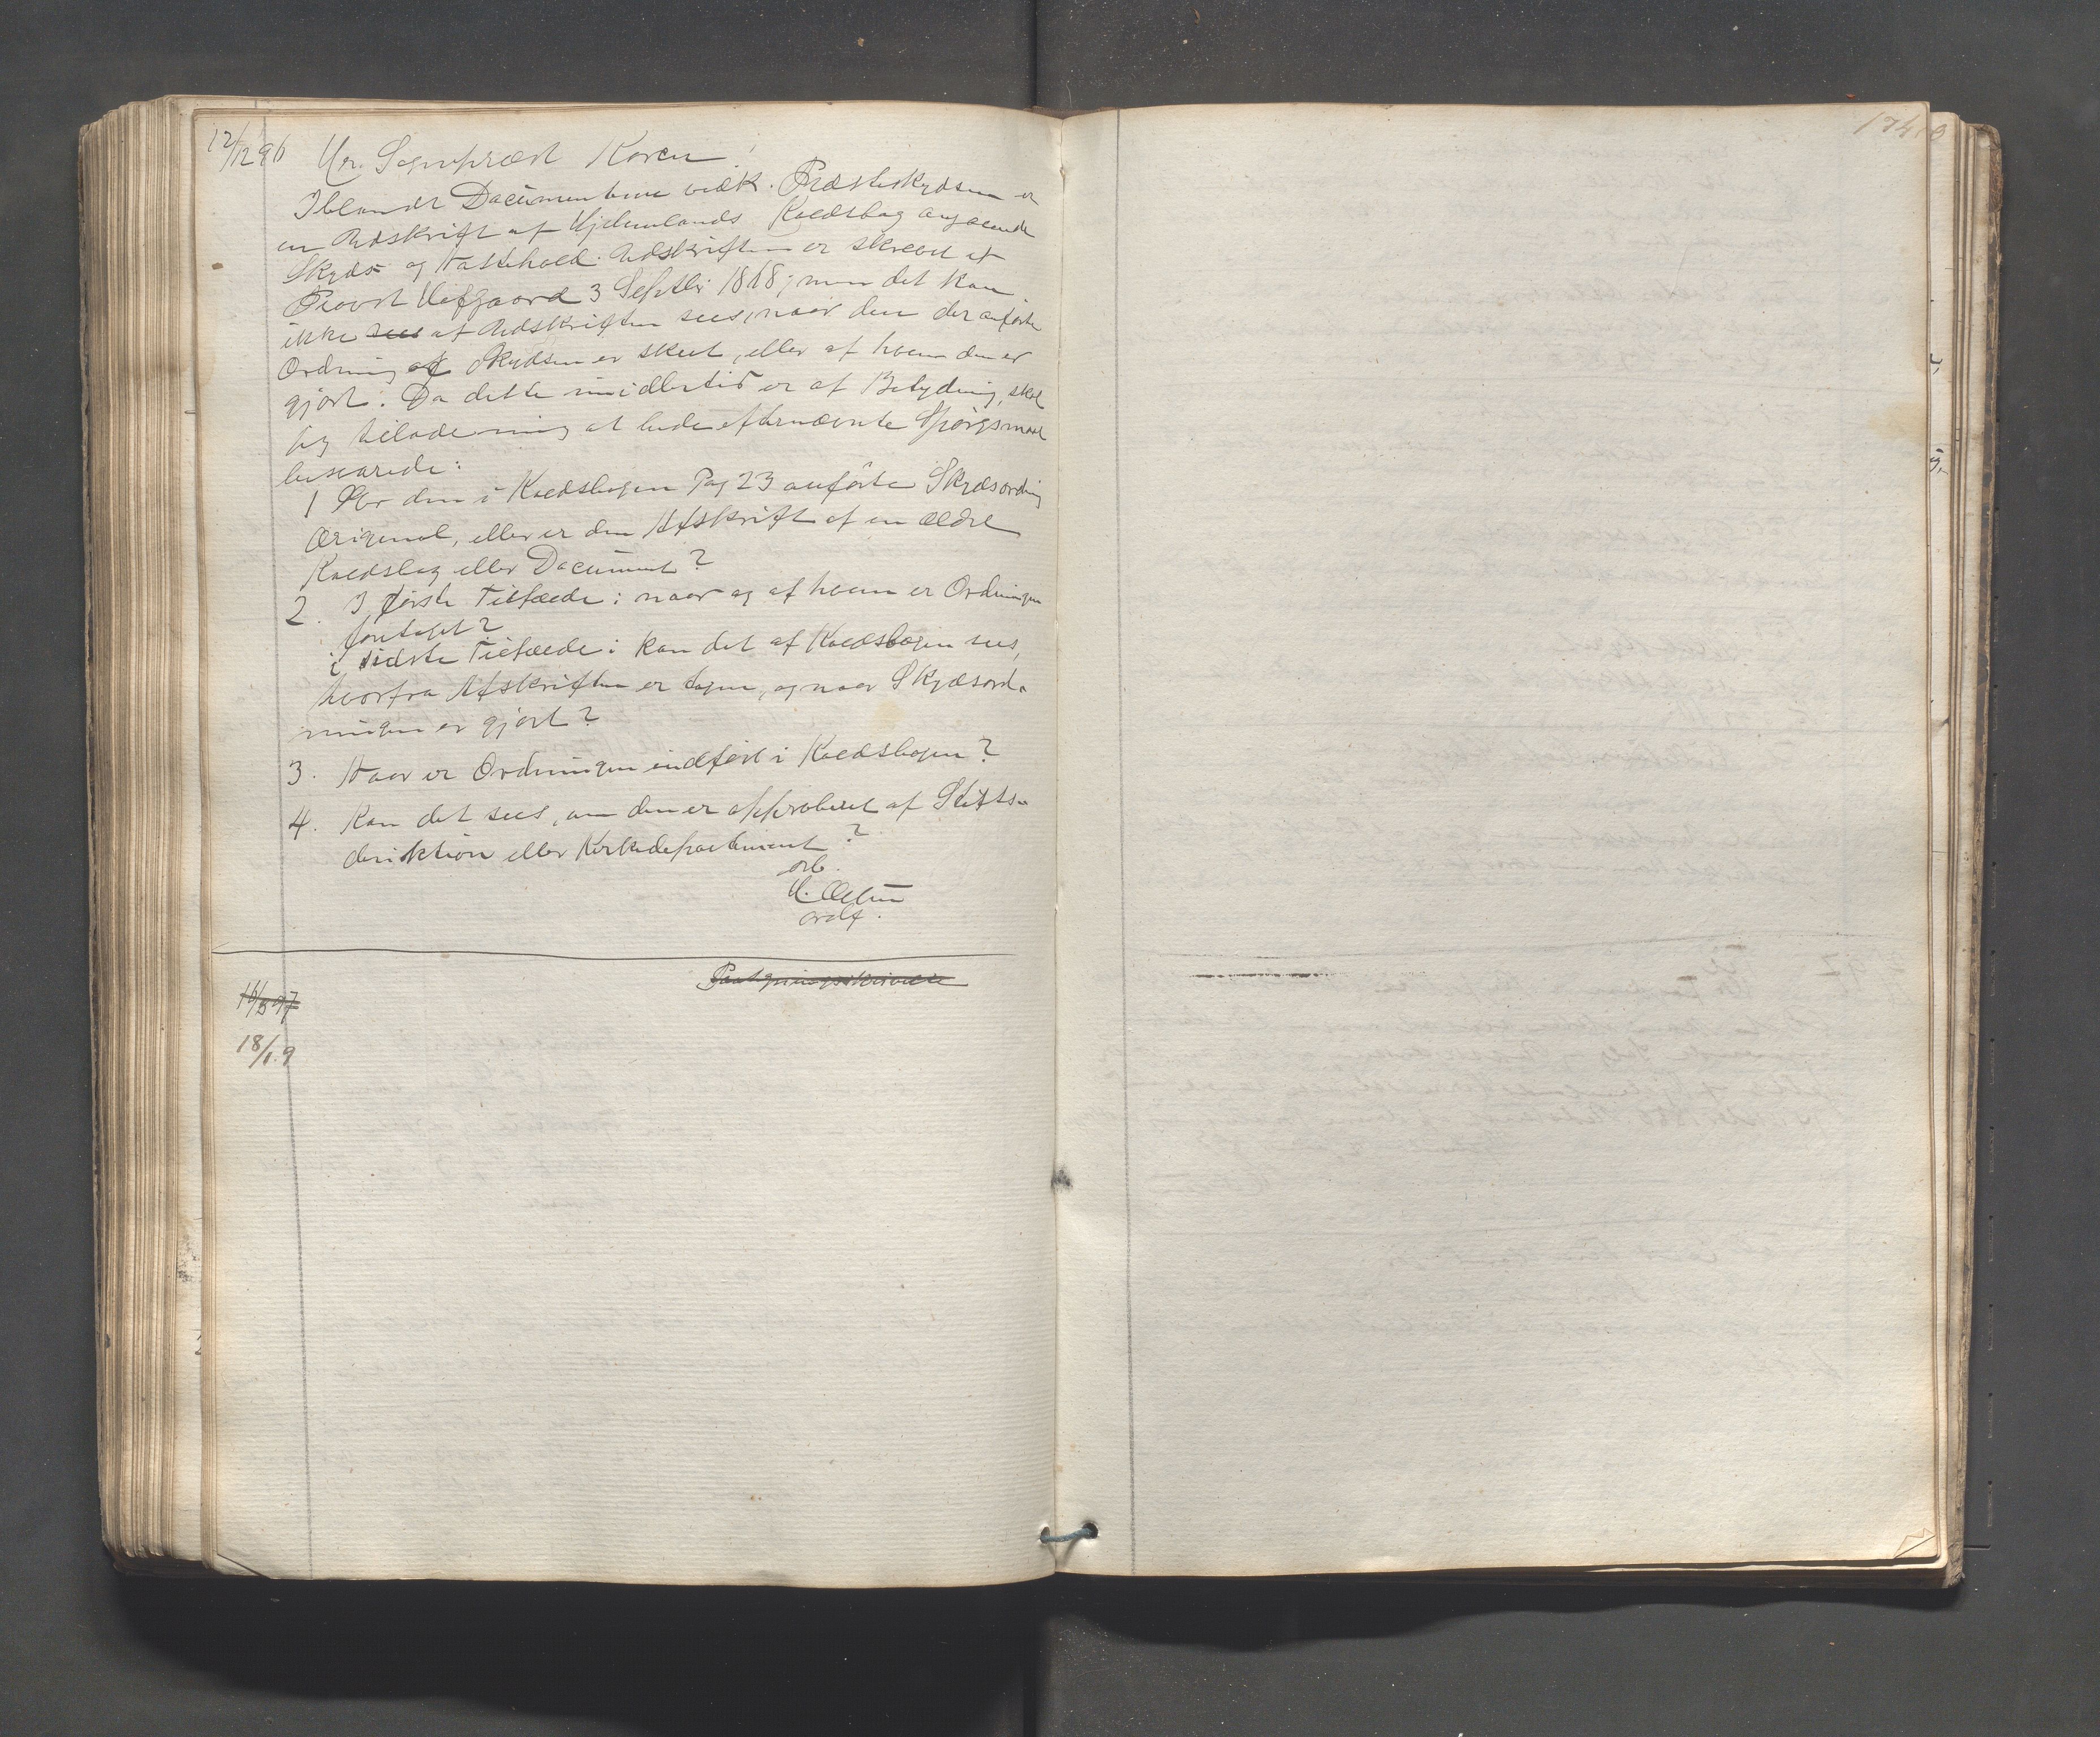 12/12 96 Hr. Sognepræst Koren!
Iblandt Documenterne vedk. Præsteskydsen er
en Udskrift af Hjelmelands Kaldsbog angaaende
Skyds og Nattehold. Udskriften er skrevet af
Provst Hofgaard 3 Septbr 1868; men det kan
ikke sees af Udskriften sees, naar den der anførte
Ordning af Skydsen er skeet, eller af hvem den er
gjort. Da dette imidlertid er af Betydning, skal
jeg tillade mig at bede efternævnte Spörgsmaal
besvarede:
1 Er den i Kaldsbogen Pag 23 anförte Skydsordning
Original, eller er den Afskrift af en ældre
Kaldsbog eller Document?
2. I første Tilfælde: naar og af hvem er Ordningen
foretaget?
i sidste Tilfælde: kan det af Kaldsbogen sees,
hvorfra Afskriften er tagen, og naar Skydsord-
ningen er gjort?
3. Naar er Ordningen indført i Kaldsbogen?
4. Kan det sees, om den er approberet af Stifts-
direktion eller Kirkedepartement?
ærb.
ordf.
Paategningsskrivelse
16/ 97
18/1. 9